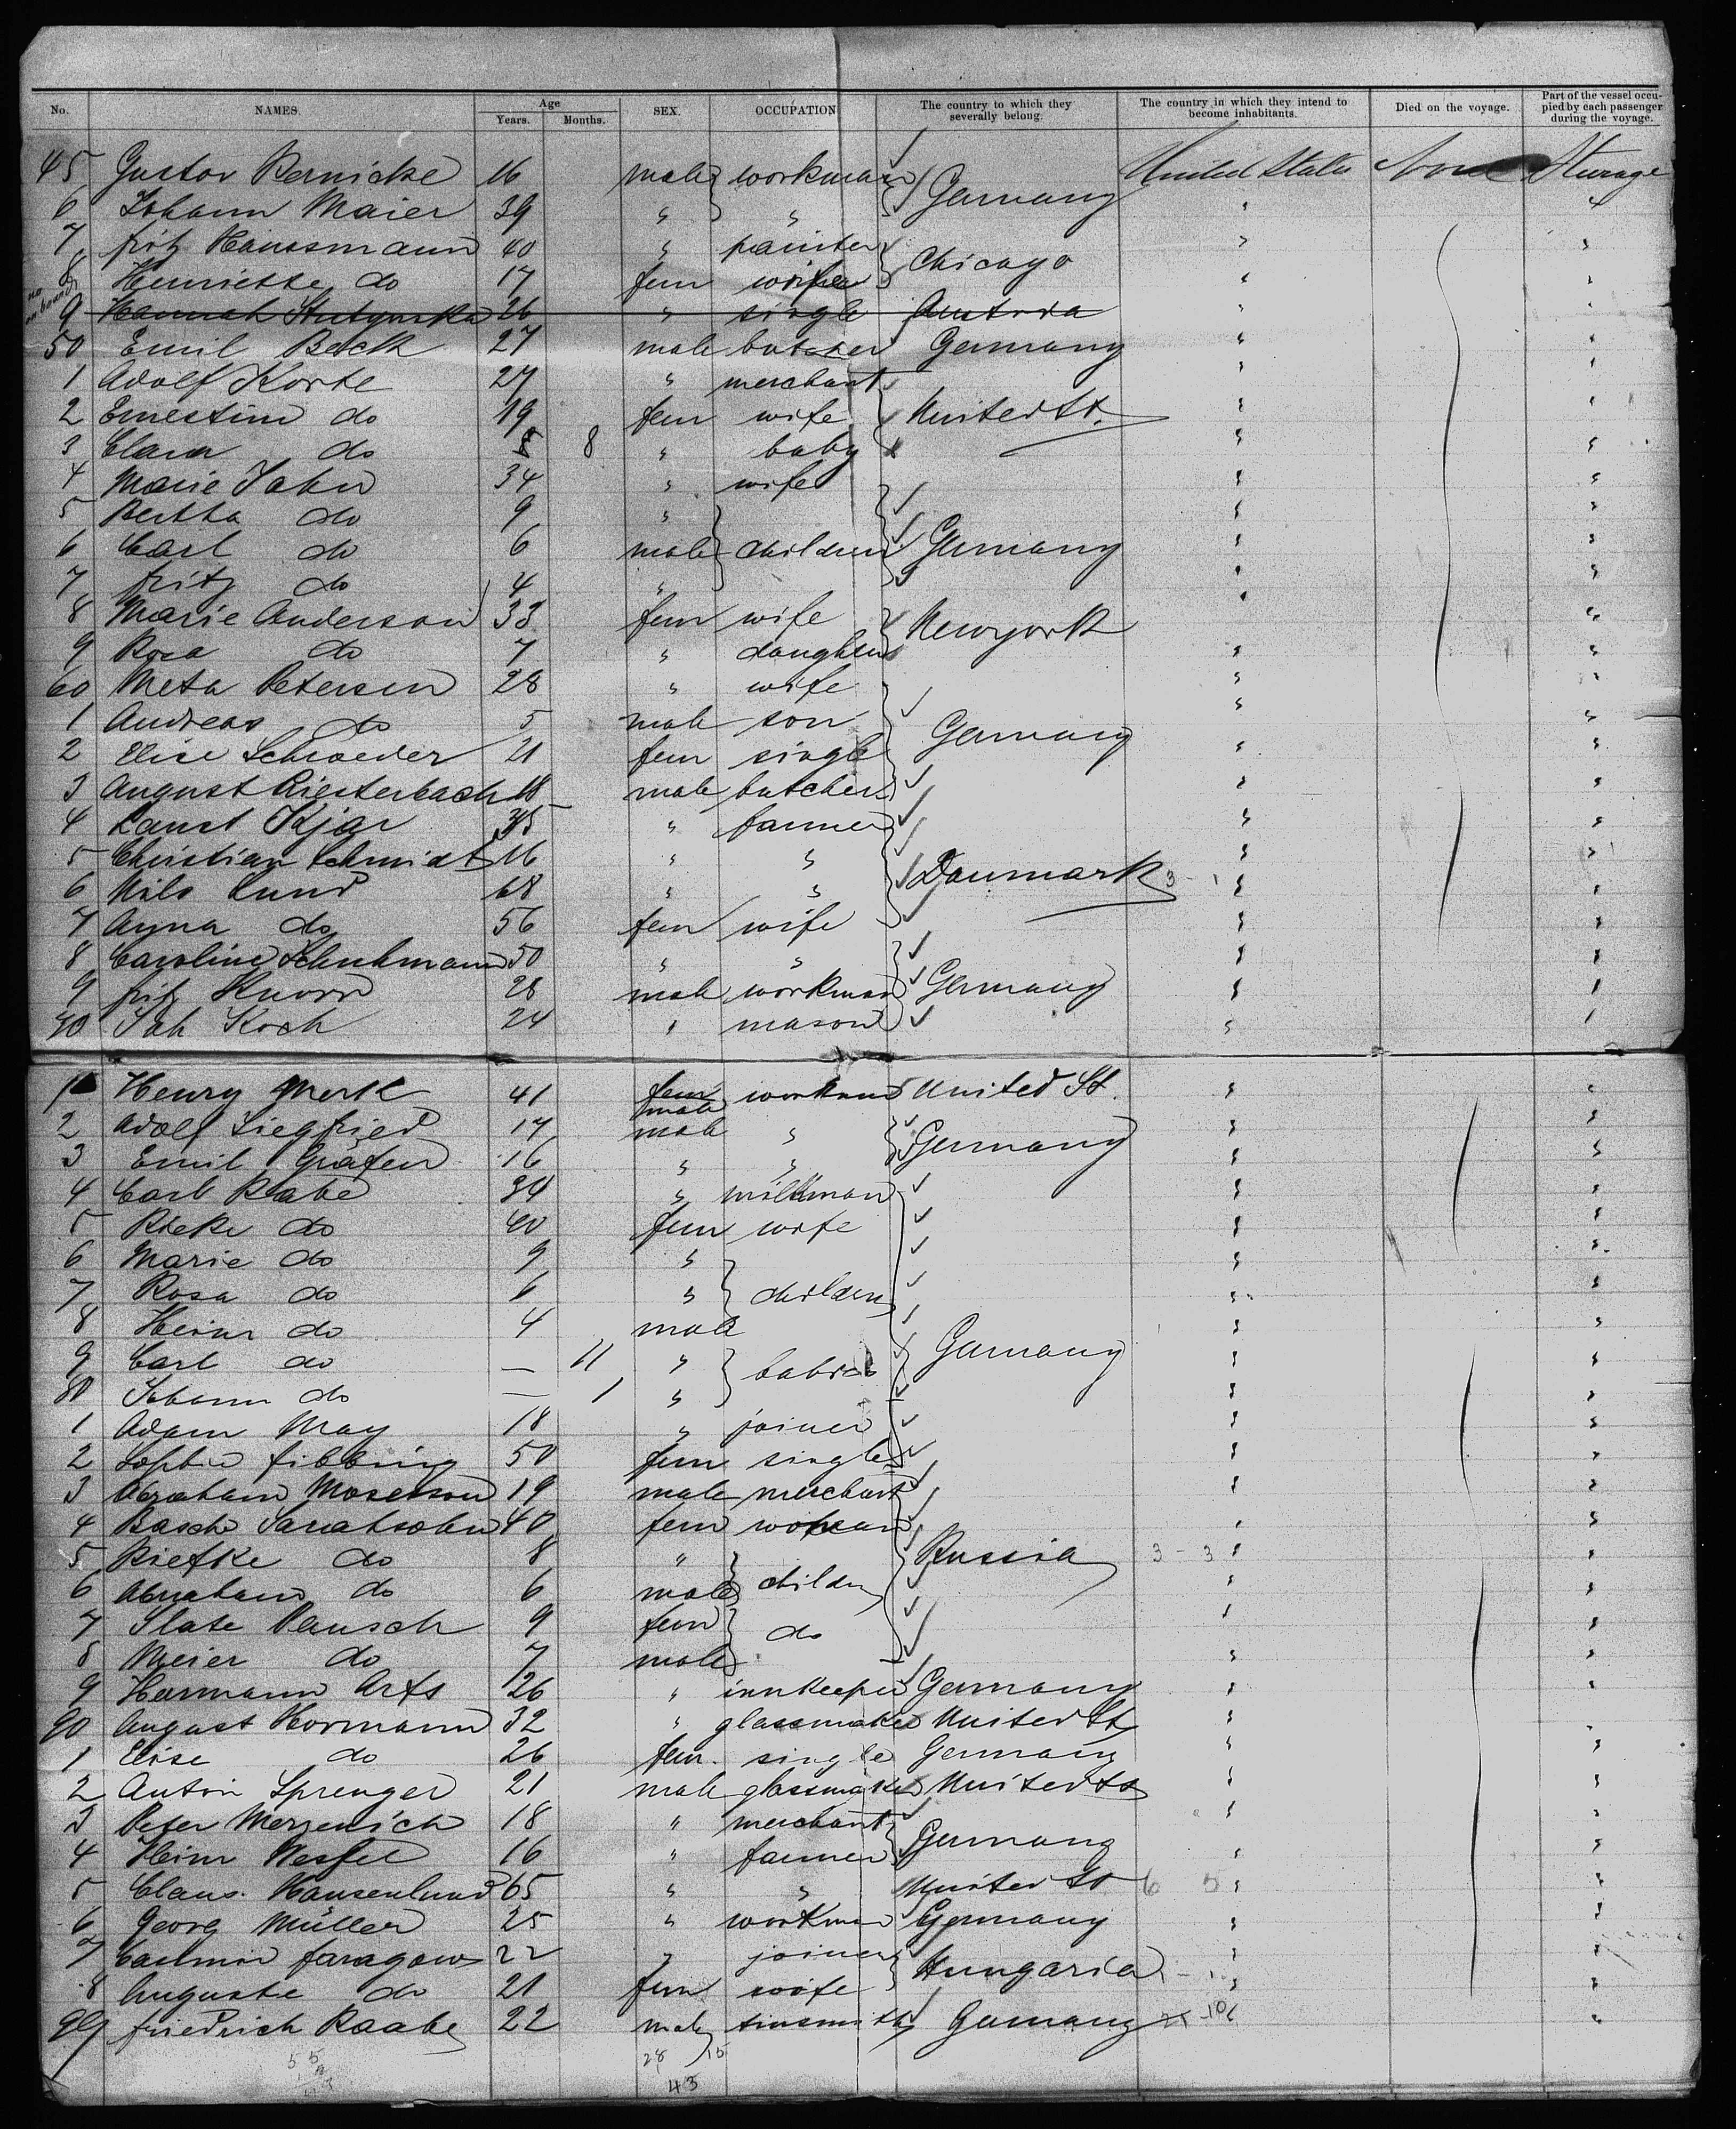 No. NAMES. Age Years. Months. SEX. OCCUPATION The country to which they severally belong. The country in which they intend to become inhabitants. Died on the voyage. Part of the vessel occupied by each passenger during the voyage.
45 Gustav Bernicke 16 male workman Germany United States None Steerage
6 Johann Maier 39 " "
7 fritz Haussmann 40 " painter Chicago
8 Henriette do 17 fem wife
no on board 9 Hannah 26 " single Austria
50 Emil Beck 27 male butcher Germany
1 Adolf Korte 27 " merchant
2 Ernestine do 19 fem wife United St.
3 Clara do 8 " baby
4 Marie Jahn 34 " wife
5 Bertha do 9 "
6 Carl do 6 male children Germany
7 fritz do 4 "
8 Marie Anderson 33 fem wife Newyork
9 Rosa do 7 " daughter
60 Meta Petersen 28 " wife
1 Andreas do 5 male son Germany
2 Elise Schroeder 21 fem single
3 August Riesterbach 18 male butcher
4 Laust Kjar 35 " farmer
5 Christian Schmidt 16 " "
6 Nils Lund 68 " " Danmark 3 - 1
7 Anna do 56 fem wife
8 Caroline Schuhmann 50 " "
9 fritz Knorr 28 male workman Germany
70 Jak Koch 24 " mason
1 Henry Merk 41 fem male workman United St.
2 Adolf Siegfried 17 male " Germany
3 Emil Grafen 16 " "
4 Carl Rabe 34 " milkman
5 Rieke do 40 fem wife
6 Marie do 9 "
7 Rosa do 6 " children
8 Heinr do 4 male
9 Carl do — 11 " babies Germany
80 Johann do — 1 "
1 Adam May 18 " joiner
2 Sophie fibbing 50 fem single
3 Abraham Moserson 19 male merchant
4 Basche Sarahsohn 40 fem woman
5 Riefke do 8 " childn Russia 3 - 3
6 Abraham do 6 male
7 Slate Pausch 9 fem do
8 Meier do 7 male
9 Hermann Arfs 26 " innkeeper Germany
90 August Hormann 32 " glassmaker United St
1 Elise do 26 fem. single Germany
2 Anton Sprenger 21 male glassmaker United St
3 Peter Merzenich 18 " merchant Germany
4 Heinr Wessel 16 " farmer
5 Claus. Hansenlund 65 " " United St 6 5
6 Georg Müller 25 " workman Germany
7 Casimir faragow 22 " joiner Hungaria
8 Auguste do 21 fem wife
99 friedrich Raabe 22 male tinsmith Germany
28 15
43